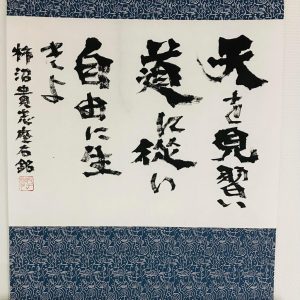 天を見習い
道に従い
自由に生
きよ
柿沼貴志座右銘